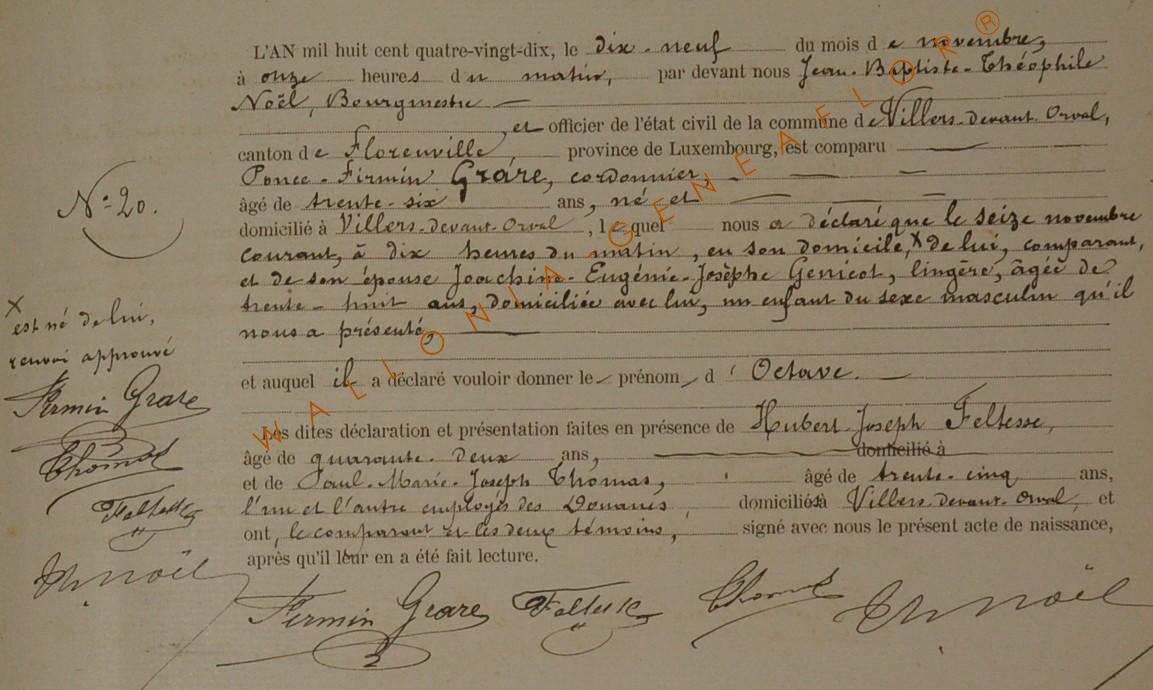 L'AN mil huit cent quatre-vingt-dix, le dix-neuf du mois de novembre,
à onze heures du matin, par devant nous Jean-Baptiste-Théophile
Noël, Bourgmestre —
, et officier de l'état civil de la commune de Villers-devant-Orval,
canton de Florenville province de Luxembourg, est comparu —
Ponce-Firmin Grare, cordonnier,
âgé de trente-six ans, né et
domicilié à Villers-devant-Orval, lequel nous a déclaré que le seize novembre
courant, à dix heures du matin, en son domicile, X de lui, comparant,
et de son épouse Joachine-Eugénie-Josèphe Genicot, lingère, âgée de
trente-huit ans, domiciliée avec lui, un enfant du sexe masculin qu'il
nous a présenté,
et auquel il a déclaré vouloir donner le prénom d'Octave.
Les dites déclaration et présentation faites en présence de Hubert-Joseph Feltesse,
âgé de quarante-deux ans, domicilié à
et de Paul-Marie-Joseph Thomas, âgé de trente-cinq ans,
l'un et l'autre employés des Douanes, domiciliés à Villers-devant-Orval, et
ont, le comparant et les deux témoins, signé avec nous le présent acte de naissance,
après qu'il leur en a été fait lecture.
Firmin Grare Feltesse Thomas Th Noël
N° 20.
X
est né de lui,
renvoi approuvé
Firmin Grare
Thomas
Feltesse
Th Noël
WALLONIA GENEAFLOR ®